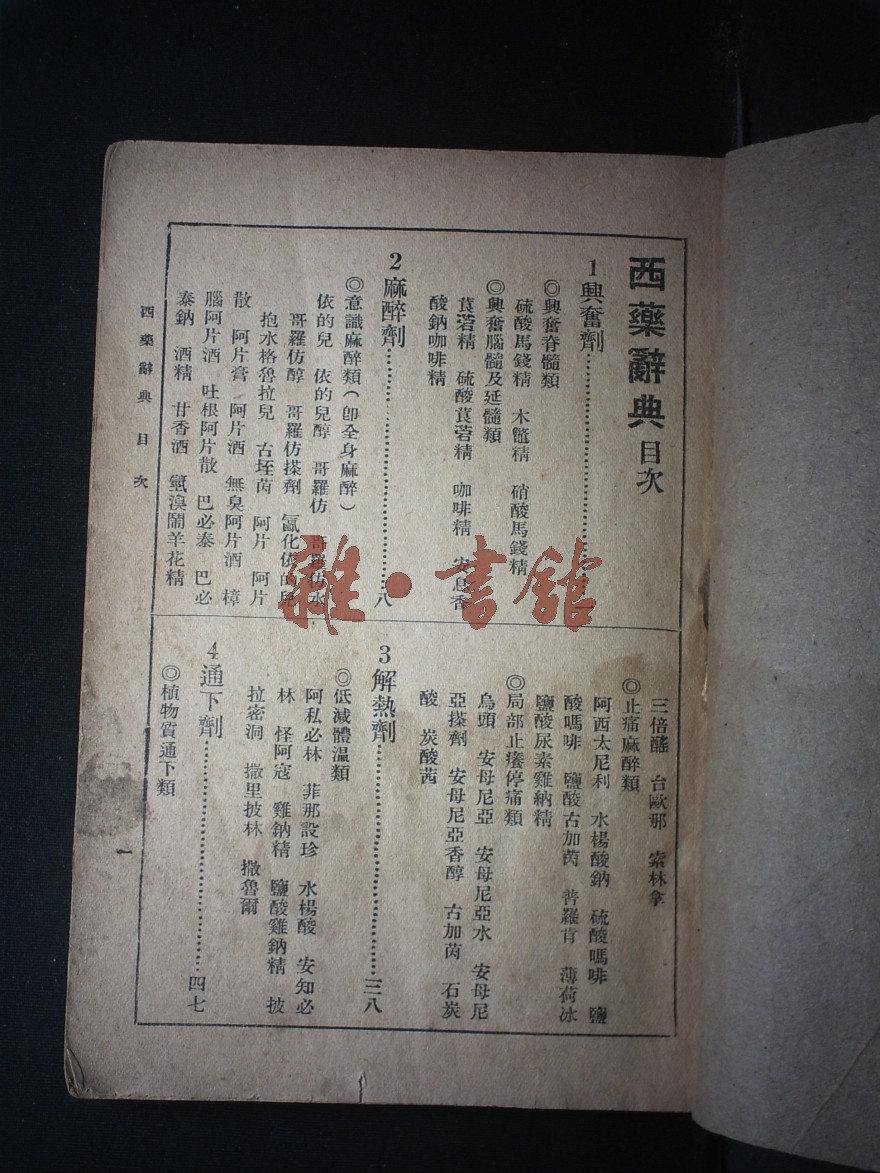 西藥辭典目次
1 興奮劑……………一
◎興奮脊髓類
硫酸馬錢精 木鼈精 硝酸馬錢精
◎興奮腦髓及延髓類
莨菪精 硫酸莨菪精 咖啡精 安息香
酸鈉咖啡精
2 麻醉劑……………八
◎意識麻醉類(卽全身麻醉)
依的兒 依的兒醇 哥羅仿 哥羅仿水
哥羅仿醇 哥羅仿搽劑 氯化依的兒
抱水格魯拉兒 古垤茵 阿片 阿片
散 阿片膏 阿片酒 無臭阿片酒 樟
腦阿片酒 吐根阿片散 巴必泰 巴必
泰鈉 酒精 甘香酒 氫溴鬧羊花精
三倍醛 台歐那 索林拿
◎止痛麻醉類
阿西太尼利 水楊酸鈉 硫酸嗎啡 鹽
酸嗎啡 鹽酸古加茵 普羅肯 薄荷冰
鹽酸尿素雞納精
◎局部止癢停痛類
烏頭 安母尼亞 安母尼亞水 安母尼
亞搽劑 安母尼亞香醇 古加茵 石炭
酸 炭酸茜
3 解熱劑……………三八
◎低減體溫類
阿私必林 菲那設珍 水楊酸 安知必
林 怪阿寇 雞鈉精 鹽酸雞鈉精 披
拉密洞 撒里披林 撒魯爾
4 通下劑……………四七
◎植物質通下類
西藥辭典 目次
一
雜·書館